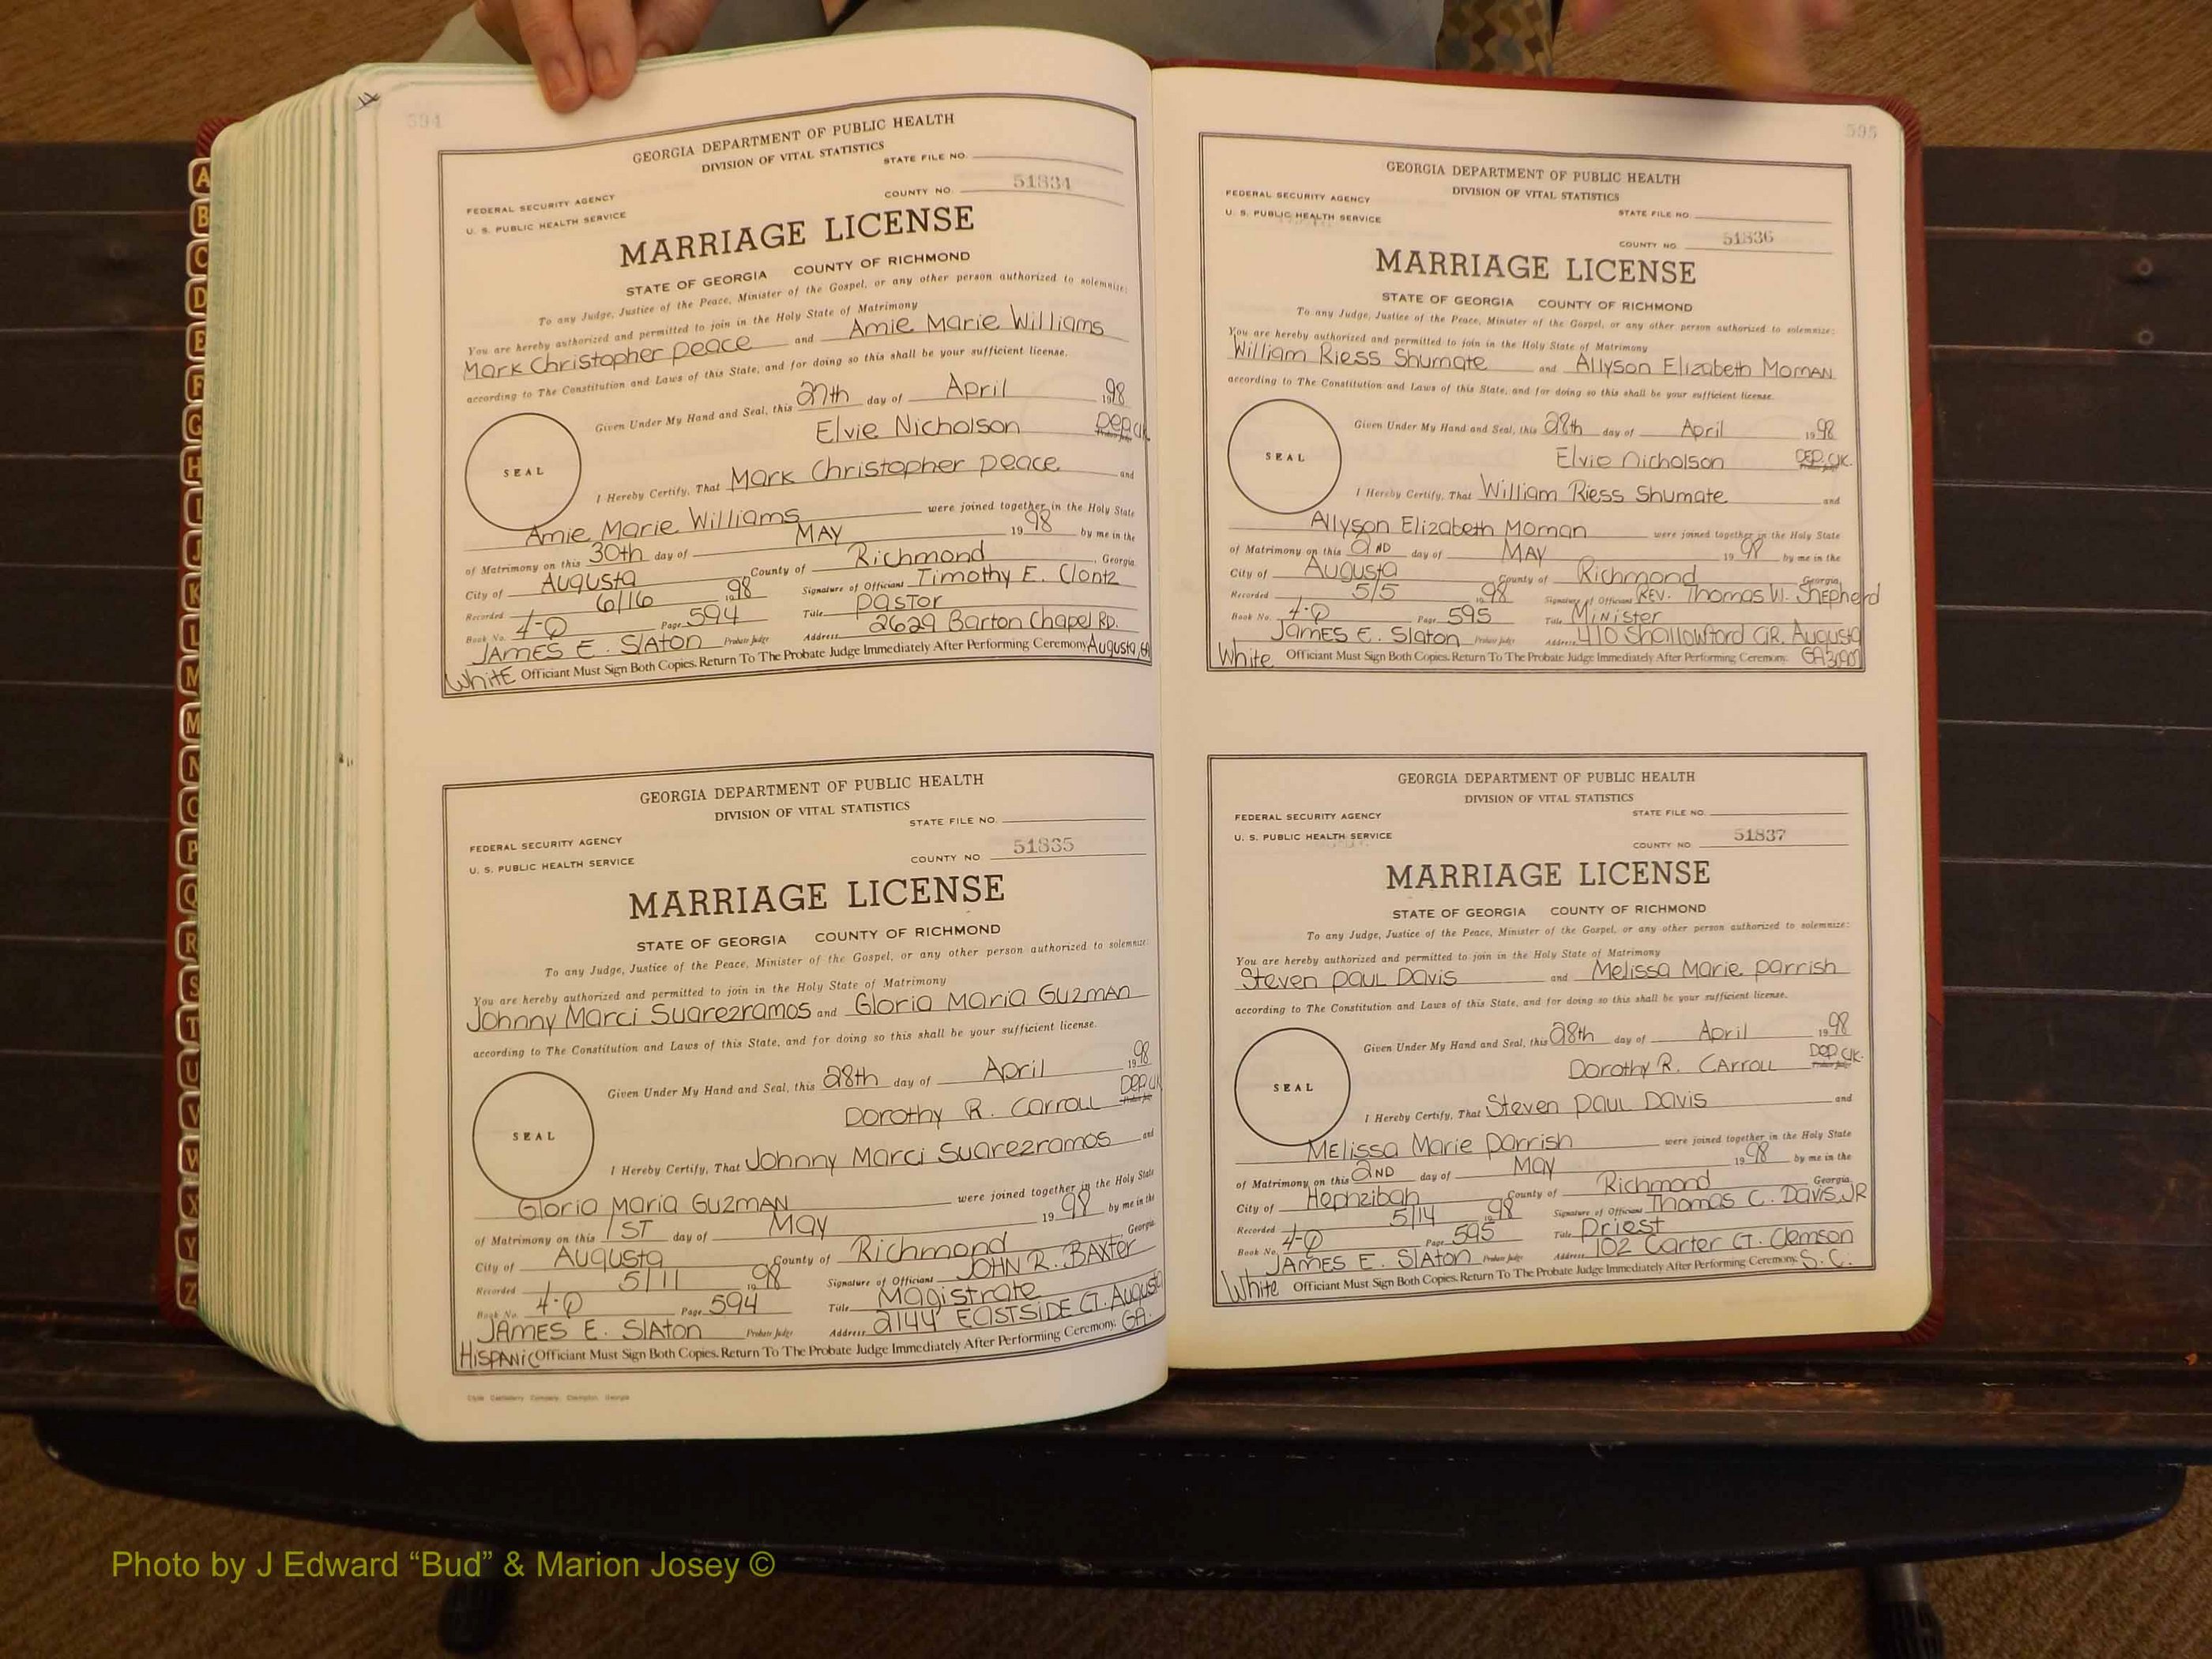 594
GEORGIA DEPARTMENT OF PUBLIC HEALTH
DIVISION OF VITAL STATISTICS
STATE FILE NO.
FEDERAL SECURITY AGENCY
COUNTY NO. 51834
U. S. PUBLIC HEALTH SERVICE
MARRIAGE LICENSE
STATE OF GEORGIA COUNTY OF RICHMOND
To any Judge, Justice of the Peace, Minister of the Gospel, or any other person authorized to solemnize:
You are hereby authorized and permitted to join in the Holy State of Matrimony
Mark Christopher Peace and Amie Marie Williams
according to The Constitution and Laws of this State, and for doing so this shall be your sufficient license.
Given Under My Hand and Seal, this 27th day of April 1998
Elvie Nicholson Dep Clk
SEAL
I Hereby Certify, That Mark Christopher Peace and
Amie Marie Williams were joined together in the Holy State
of Matrimony on this 30th day of MAY 1998 by me in the
City of Augusta County of Richmond, Georgia
Recorded 6/16 1998 Signature of Officiant Timothy E. Clontz
Book No. 4-Q Page 594 Title Pastor
JAMES E. SLATON Probate Judge Address 2629 Barton Chapel RD.
White Officiant Must Sign Both Copies. Return To The Probate Judge Immediately After Performing Ceremony. Augusta, GA
GEORGIA DEPARTMENT OF PUBLIC HEALTH
DIVISION OF VITAL STATISTICS
STATE FILE NO.
FEDERAL SECURITY AGENCY
COUNTY NO 51835
U. S. PUBLIC HEALTH SERVICE
MARRIAGE LICENSE
STATE OF GEORGIA COUNTY OF RICHMOND
To any Judge, Justice of the Peace, Minister of the Gospel, or any other person authorized to solemnize:
You are hereby authorized and permitted to join in the Holy State of Matrimony
Johnny Marci Suarezramos and Gloria Maria Guzman
according to The Constitution and Laws of this State, and for doing so this shall be your sufficient license.
Given Under My Hand and Seal, this 28th day of April 1998
Dorothy R. Carroll Dep Clk
SEAL
I Hereby Certify, That Johnny Marci Suarezramos and
Gloria Maria Guzman were joined together in the Holy State
of Matrimony on this 1ST day of May 1998 by me in the
City of Augusta County of Richmond Georgia
Recorded 5/11 1998 Signature of Officiant JOHN R. BAXTER
Book No. 4-Q Page 594 Title Magistrate
JAMES E. SLATON Probate Judge Address 2144 EASTSIDE CT. Augusta
HISPANIC Officiant Must Sign Both Copies. Return To The Probate Judge Immediately After Performing Ceremony. GA.
595
GEORGIA DEPARTMENT OF PUBLIC HEALTH
DIVISION OF VITAL STATISTICS
FEDERAL SECURITY AGENCY
STATE FILE NO.
U. S. PUBLIC HEALTH SERVICE
COUNTY NO 51836
MARRIAGE LICENSE
STATE OF GEORGIA COUNTY OF RICHMOND
To any Judge, Justice of the Peace, Minister of the Gospel, or any other person authorized to solemnize:
You are hereby authorized and permitted to join in the Holy State of Matrimony
William Riess Shumate and Allyson Elizabeth Moman
according to The Constitution and Laws of this State, and for doing so this shall be your sufficient license.
Given Under My Hand and Seal, this 28th day of April 1998
Elvie Nicholson DEP. Clk.
SEAL
I Hereby Certify, That William Riess Shumate and
Allyson Elizabeth Moman were joined together in the Holy State
of Matrimony on this 2ND day of MAY 1998 by me in the
City of Augusta County of Richmond Georgia
Recorded 5/5 1998 Signature of Officiant REV. Thomas W. Shepherd
Book No. 4-Q Page 595 Title Minister
JAMES E. Slaton Probate Judge Address 410 Shallowford CIR. Augusta
White Officiant Must Sign Both Copies. Return To The Probate Judge Immediately After Performing Ceremony. GA
GEORGIA DEPARTMENT OF PUBLIC HEALTH
DIVISION OF VITAL STATISTICS
FEDERAL SECURITY AGENCY
STATE FILE NO.
U. S. PUBLIC HEALTH SERVICE
COUNTY NO. 51837
MARRIAGE LICENSE
STATE OF GEORGIA COUNTY OF RICHMOND
To any Judge, Justice of the Peace, Minister of the Gospel, or any other person authorized to solemnize:
You are hereby authorized and permitted to join in the Holy State of Matrimony
Steven Paul Davis and Melissa Marie Parrish
according to The Constitution and Laws of this State, and for doing so this shall be your sufficient license.
Given Under My Hand and Seal, this 28th day of April 1998
Dorothy R. Carroll Dep Clk.
SEAL
I Hereby Certify, That Steven Paul Davis and
Melissa Marie Parrish were joined together in the Holy State
of Matrimony on this 2ND day of May 1998 by me in the
City of Hephzibah County of Richmond Georgia
Recorded 5/14 1998 Signature of Officiant Thomas C. Davis, JR
Book No. 4-Q Page 595 Title Priest
JAMES E. Slaton Probate Judge Address 102 Carter CT. Clemson
White Officiant Must Sign Both Copies. Return To The Probate Judge Immediately After Performing Ceremony. S.C.
A
B
C
D
E
F
G
H
I
J
K
L
M
M
N
O
P
Q
R
S
T
U
V
W
X
Y
Z
Photo by J Edward “Bud” & Marion Josey ©